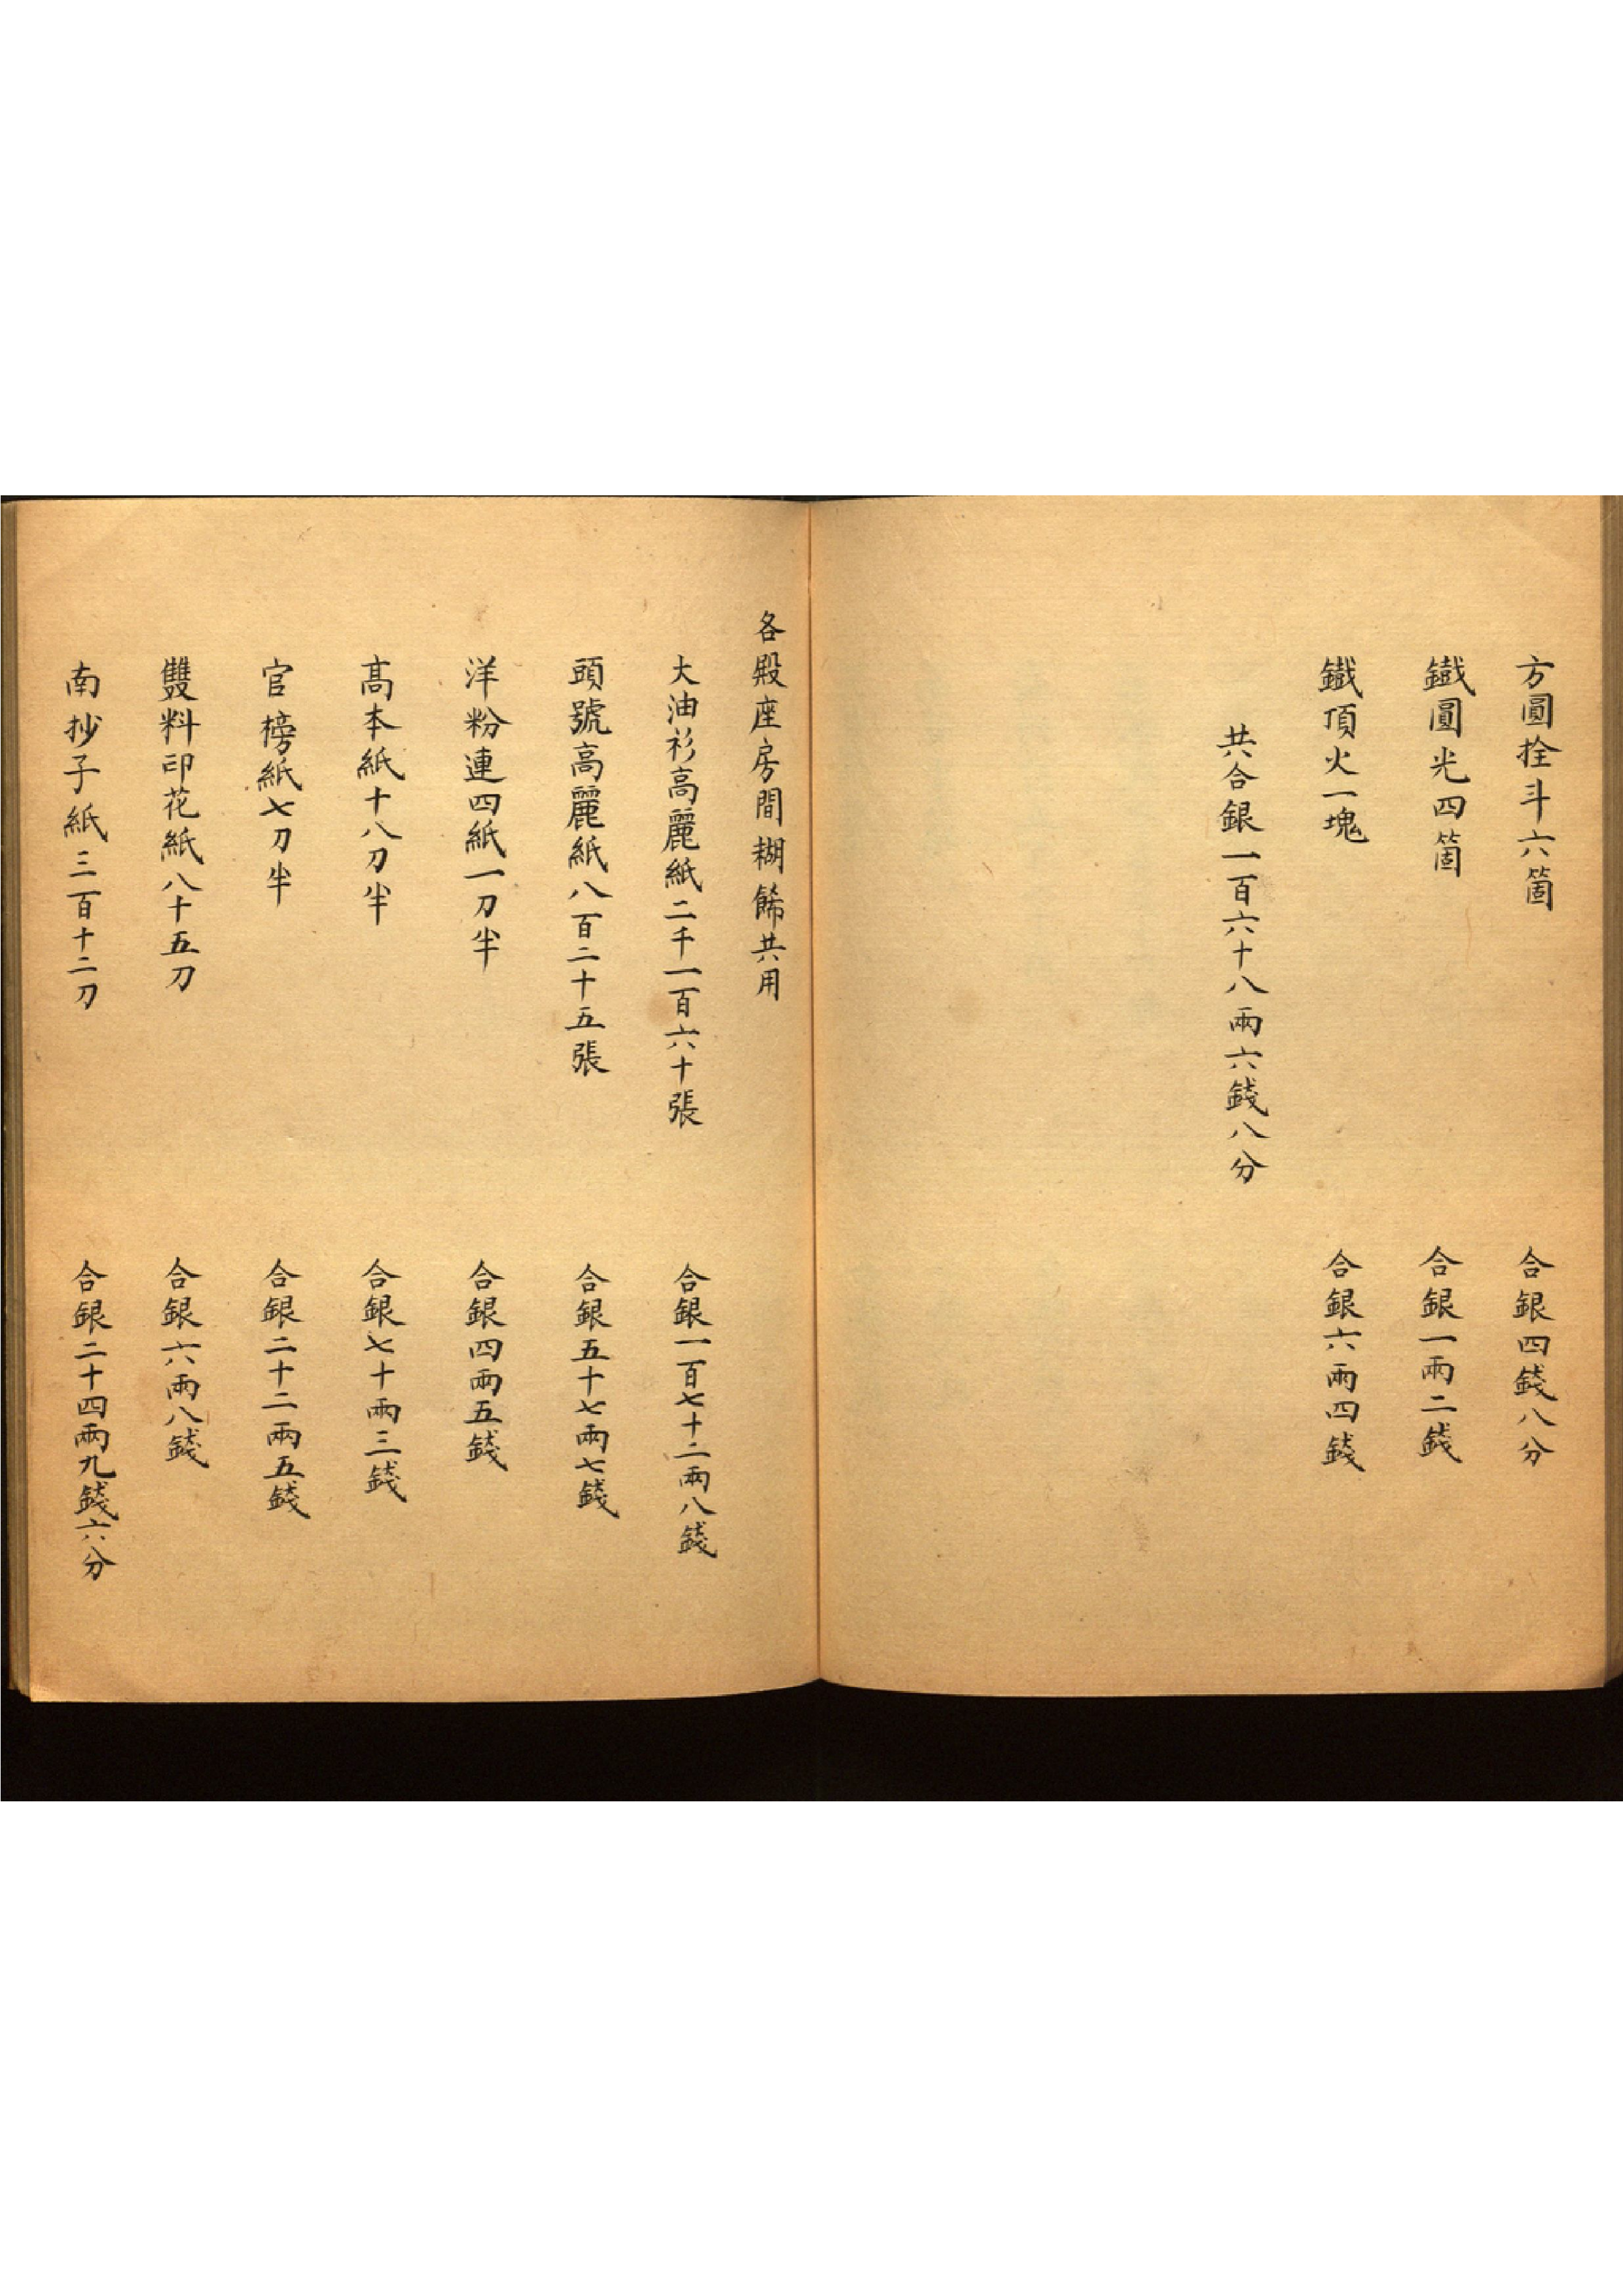 方圓拴斗六箇 合銀四錢八分
鐵圓光四箇 合銀一兩二錢
鐵頂火一塊 合銀六兩四錢
共合銀一百六十八兩六錢八分
各殿座房間糊餙共用
大油衫高麗紙二千一百六十張 合銀一百七十二兩八錢
頭號高麗紙八百二十五張 合銀五十七兩七錢
洋粉連四紙一刀半 合銀四兩五錢
高本紙十八刀半 合銀七十兩三錢
官榜紙七刀半 合銀二十二兩五錢
雙料印花紙八十五刀 合銀六兩八錢
南抄子紙三百十二刀 合銀二十四兩九錢六分